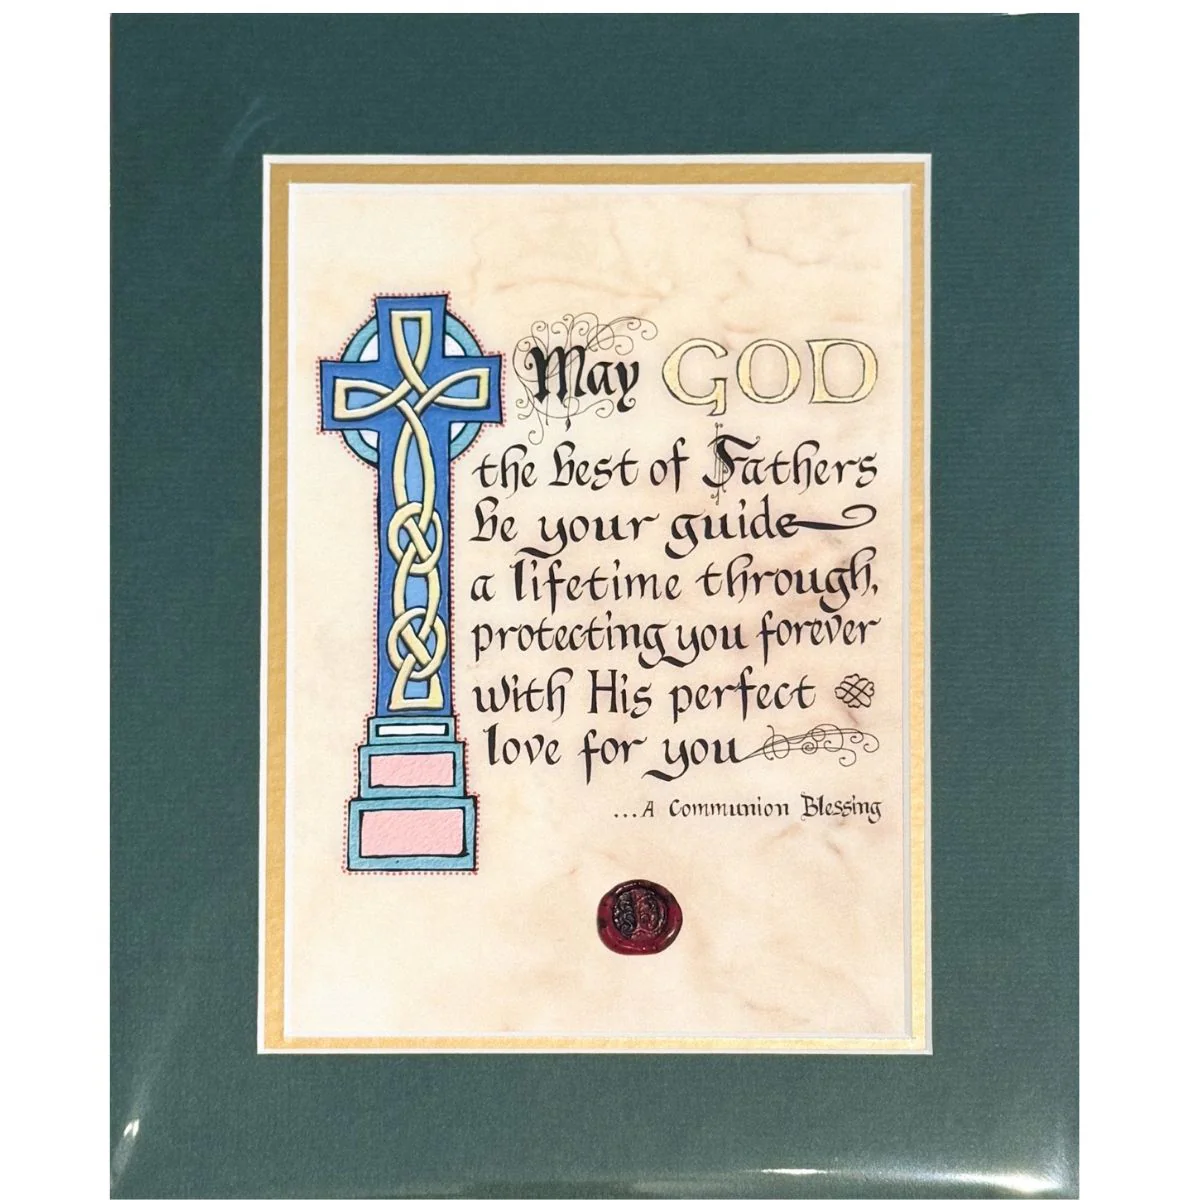 May GOD
the best of Fathers
be your guide
a lifetime through,
protecting you forever
with His perfect
love for you
...A Communion Blessing